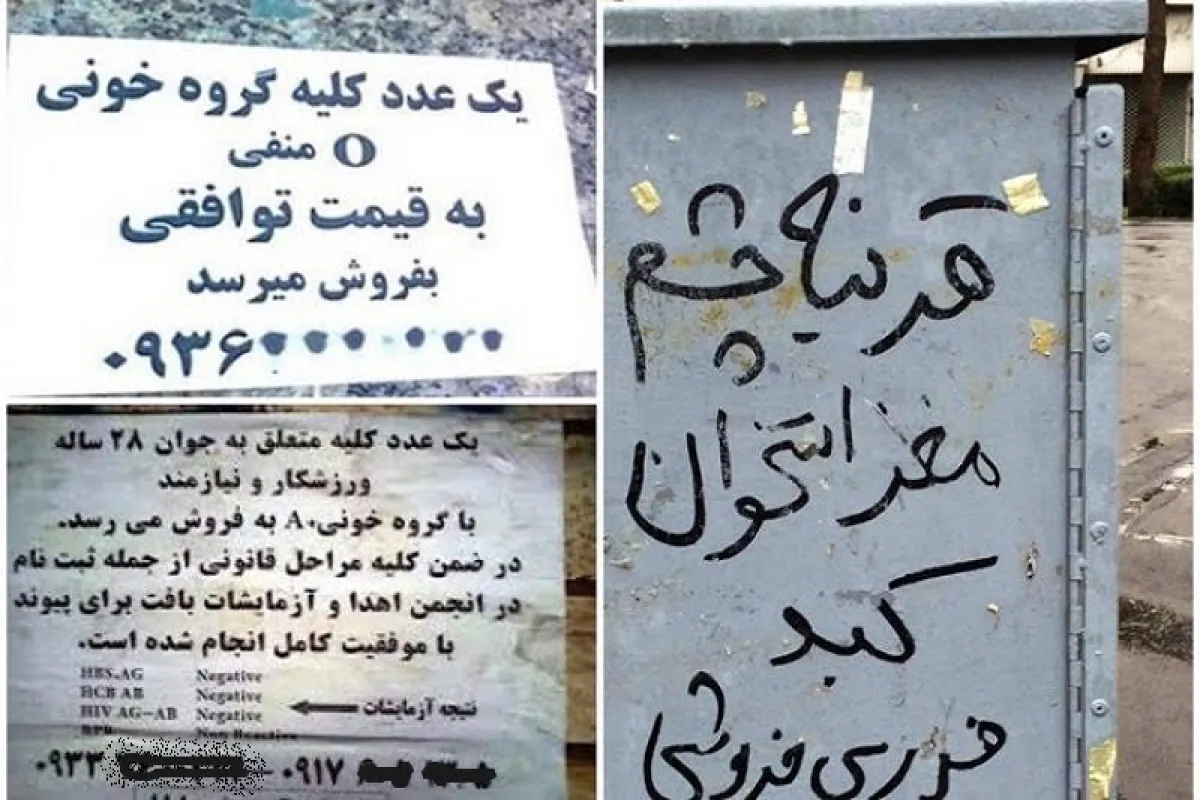 یک عدد کلیه گروه خونی
O منفی
به قیمت توافقی
بفروش میرسد
۰۹۳۶
یک عدد کلیه متعلق به جوان ۲۸ ساله
ورزشکار و نیازمند
با گروه خونی A+ به فروش می رسد.
در ضمن کلیه مراحل قانونی از جمله ثبت نام
در انجمن اهدا و آزمایشات بافت برای پیوند
با موفقیت کامل انجام شده است.
HBS.AG Negative
HCB AB Negative
HIV AG-AB Negative
نتیجه آزمایشات
RPR Non Reactive
۰۹۳۳ - ۰۹۱۷
قرنیه چشم
مغز استخوان
کبد
فوری فروشی